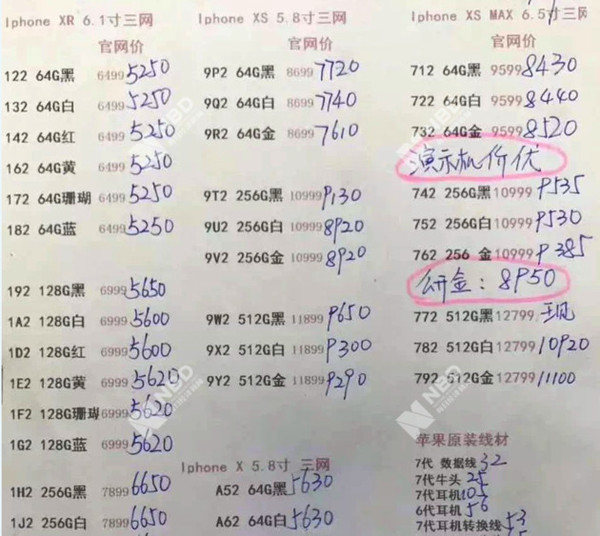 Iphone XR 6.1寸三网
官网价
122 64G黑 6499 5250
132 64G白 6499 5250
142 64G红 6499 5250
162 64G黄 6499 5250
172 64G珊瑚 6499 5250
182 64G蓝 6499 5250
192 128G黑 6999 5650
1A2 128G白 6999 5600
1D2 128G红 6999 5600
1E2 128G黄 6999 5620
1F2 128G珊瑚 6999 5620
1G2 128G蓝 6999 5620
1H2 256G黑 7899 6650
1J2 256G白 7899 6650
Iphone XS 5.8寸三网
官网价
9P2 64G黑 8699 7720
9Q2 64G白 8699 7740
9R2 64G金 8699 7610
9T2 256G黑 10999 9130
9U2 256G白 10999 8920
9V2 256G金 10999 8920
9W2 512G黑 11899 9650
9X2 512G白 11899 9300
9Y2 512G金 11899 9290
Iphone X 5.8寸 三网
A52 64G黑 5630
A62 64G白 5630
Iphone XS MAX 6.5寸三网
官网价
712 64G黑 9599 8430
722 64G白 9599 8440
732 64G金 9599 8520
演示机价优
742 256G黑 10999 9535
752 256G白 10999 9530
762 256 金 10999 9385
公开金:8950
772 512G黑 12799
782 512G白 12799 10920
792 512G金 12799 11100
苹果原装线材
7代 数据线 32
7代牛头 25
7代耳机 105
6代耳机 56
7代耳机转换线 53
NBD
每日经济新闻